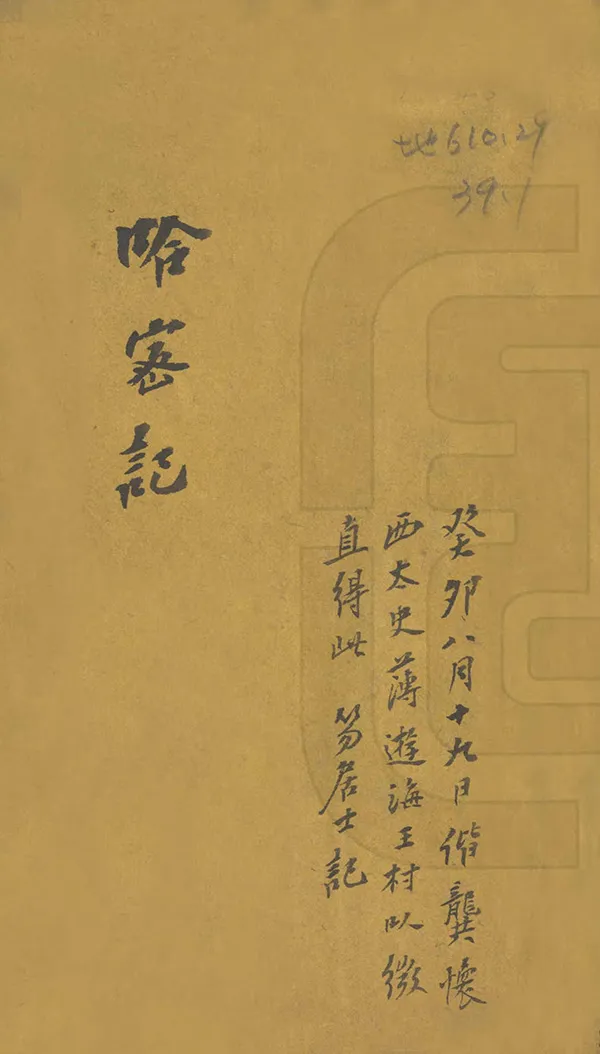 哈密記
癸卯八月十九日偕龔懷
西太史薄遊海王村以微
直得此 笏居士記
地610.29
39.1